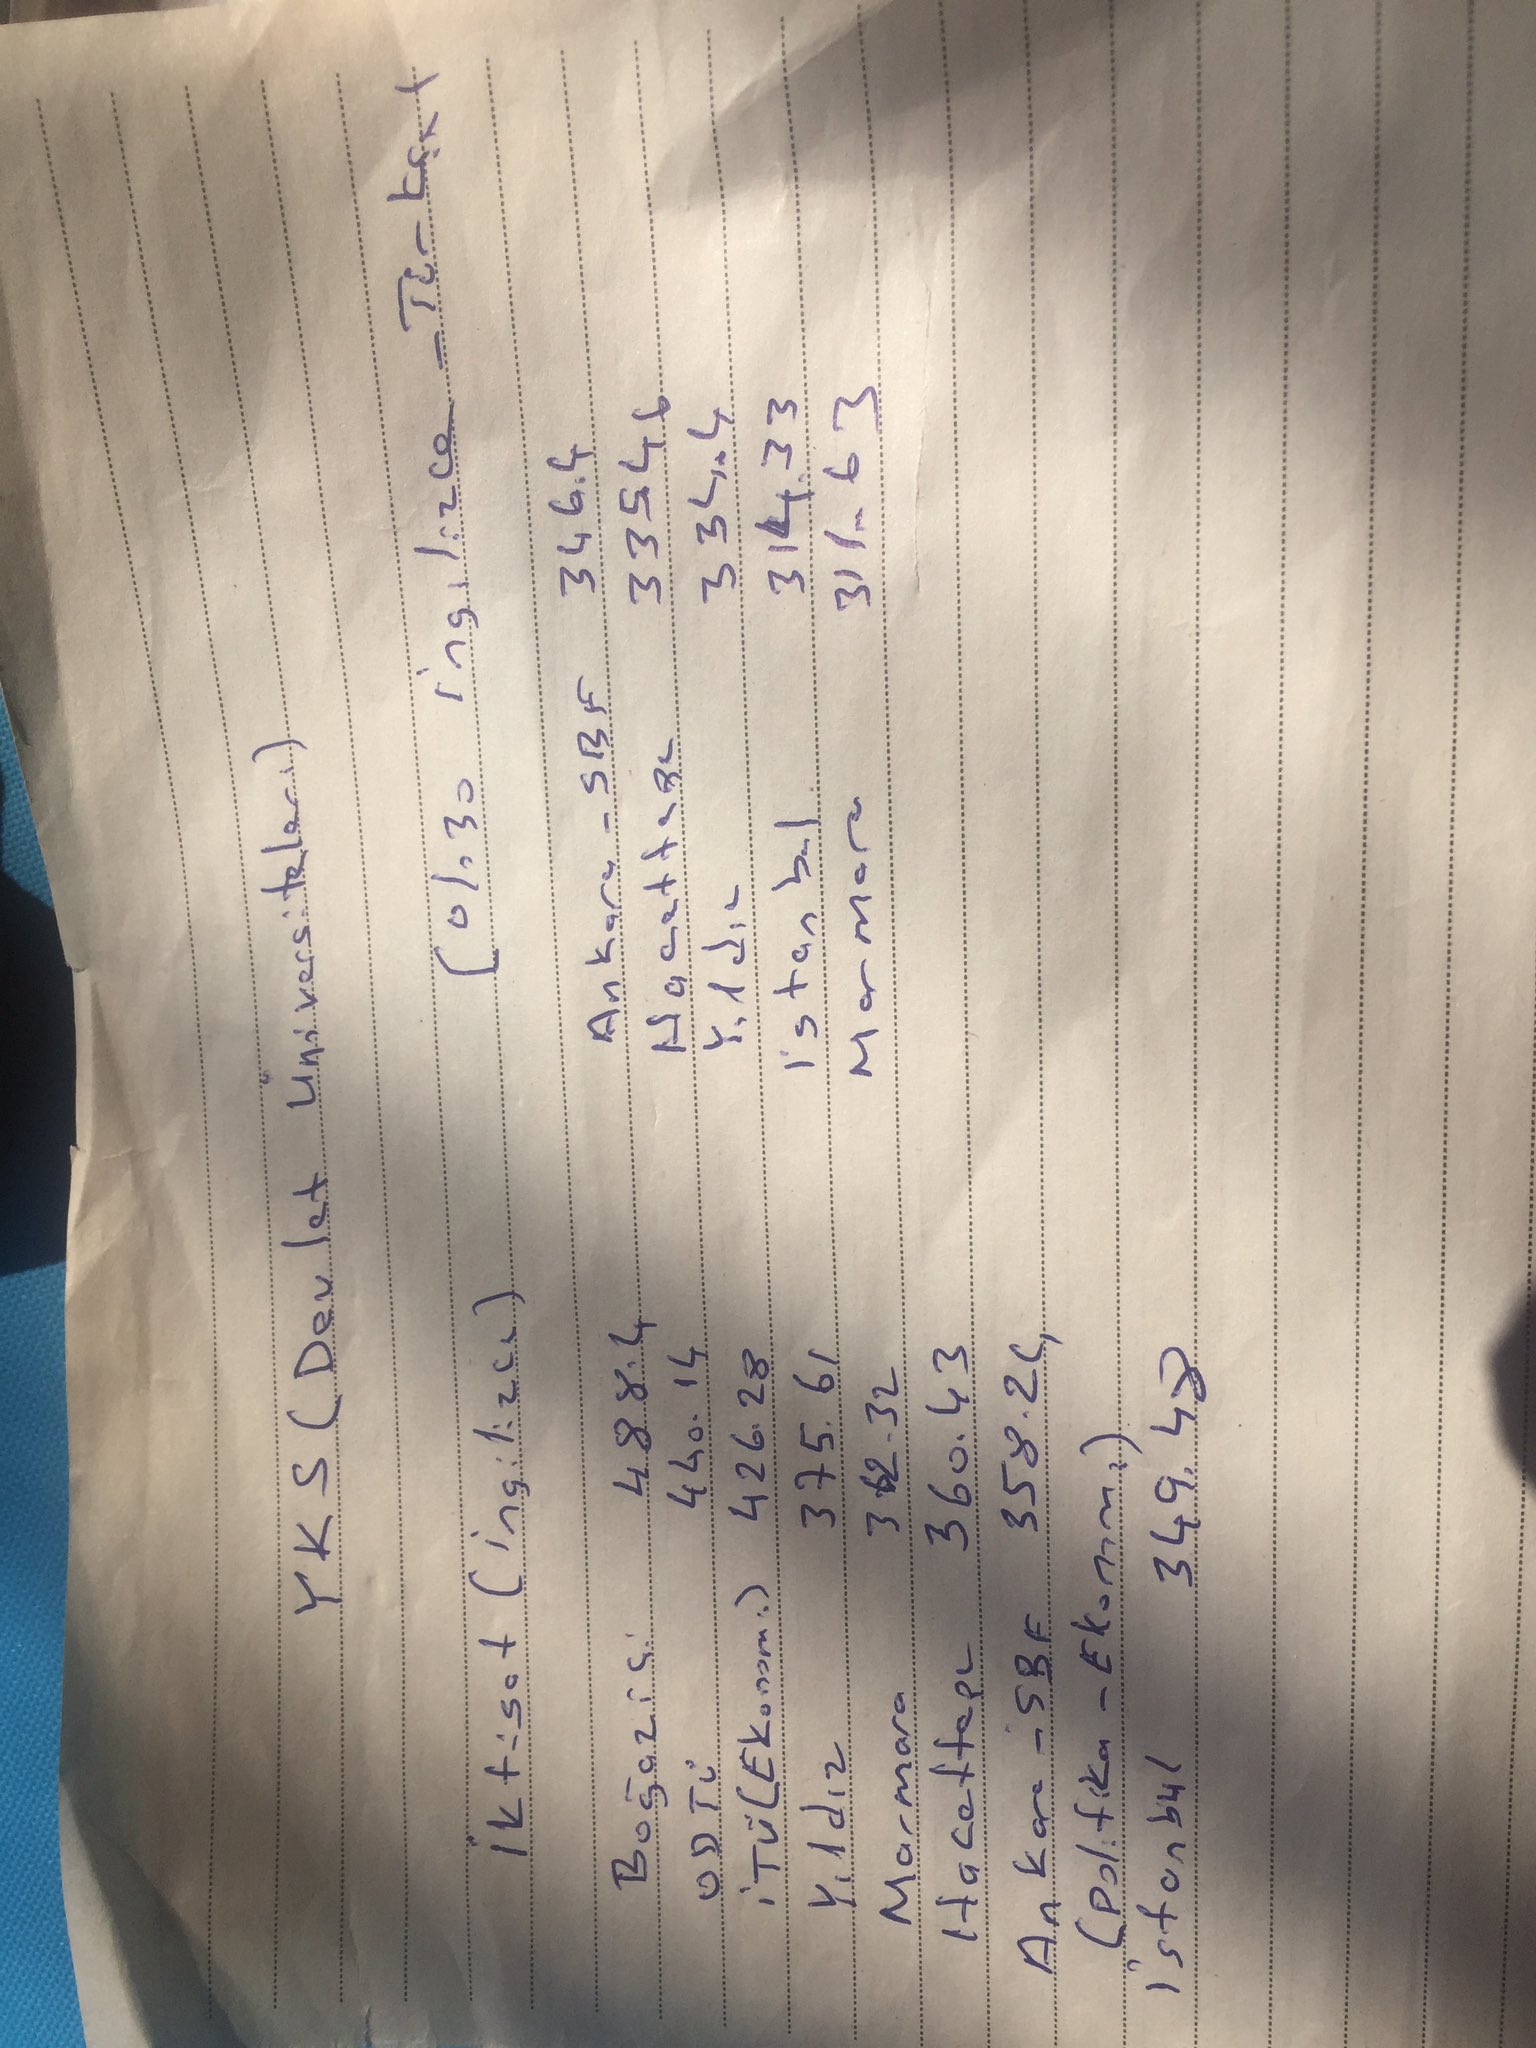 YKS (Devlet Üniversiteleri)
İktisat (ingilizce)
(%30 ingilizce - Türkçe)
Boğaziçi 488.4
ODTÜ 440.14
iTÜ (Ekonomi) 426.28
Yıldız 375.61
Marmara 362.32
Hacettepe 360.43
Ankara - SBF 358.24
(Politika - Ekonomi)
istanbul 349.48
Ankara - SBF 346.4
Hacettepe 335.46
Yıldız 334.4
istanbul 314.33
Marmara 311.63